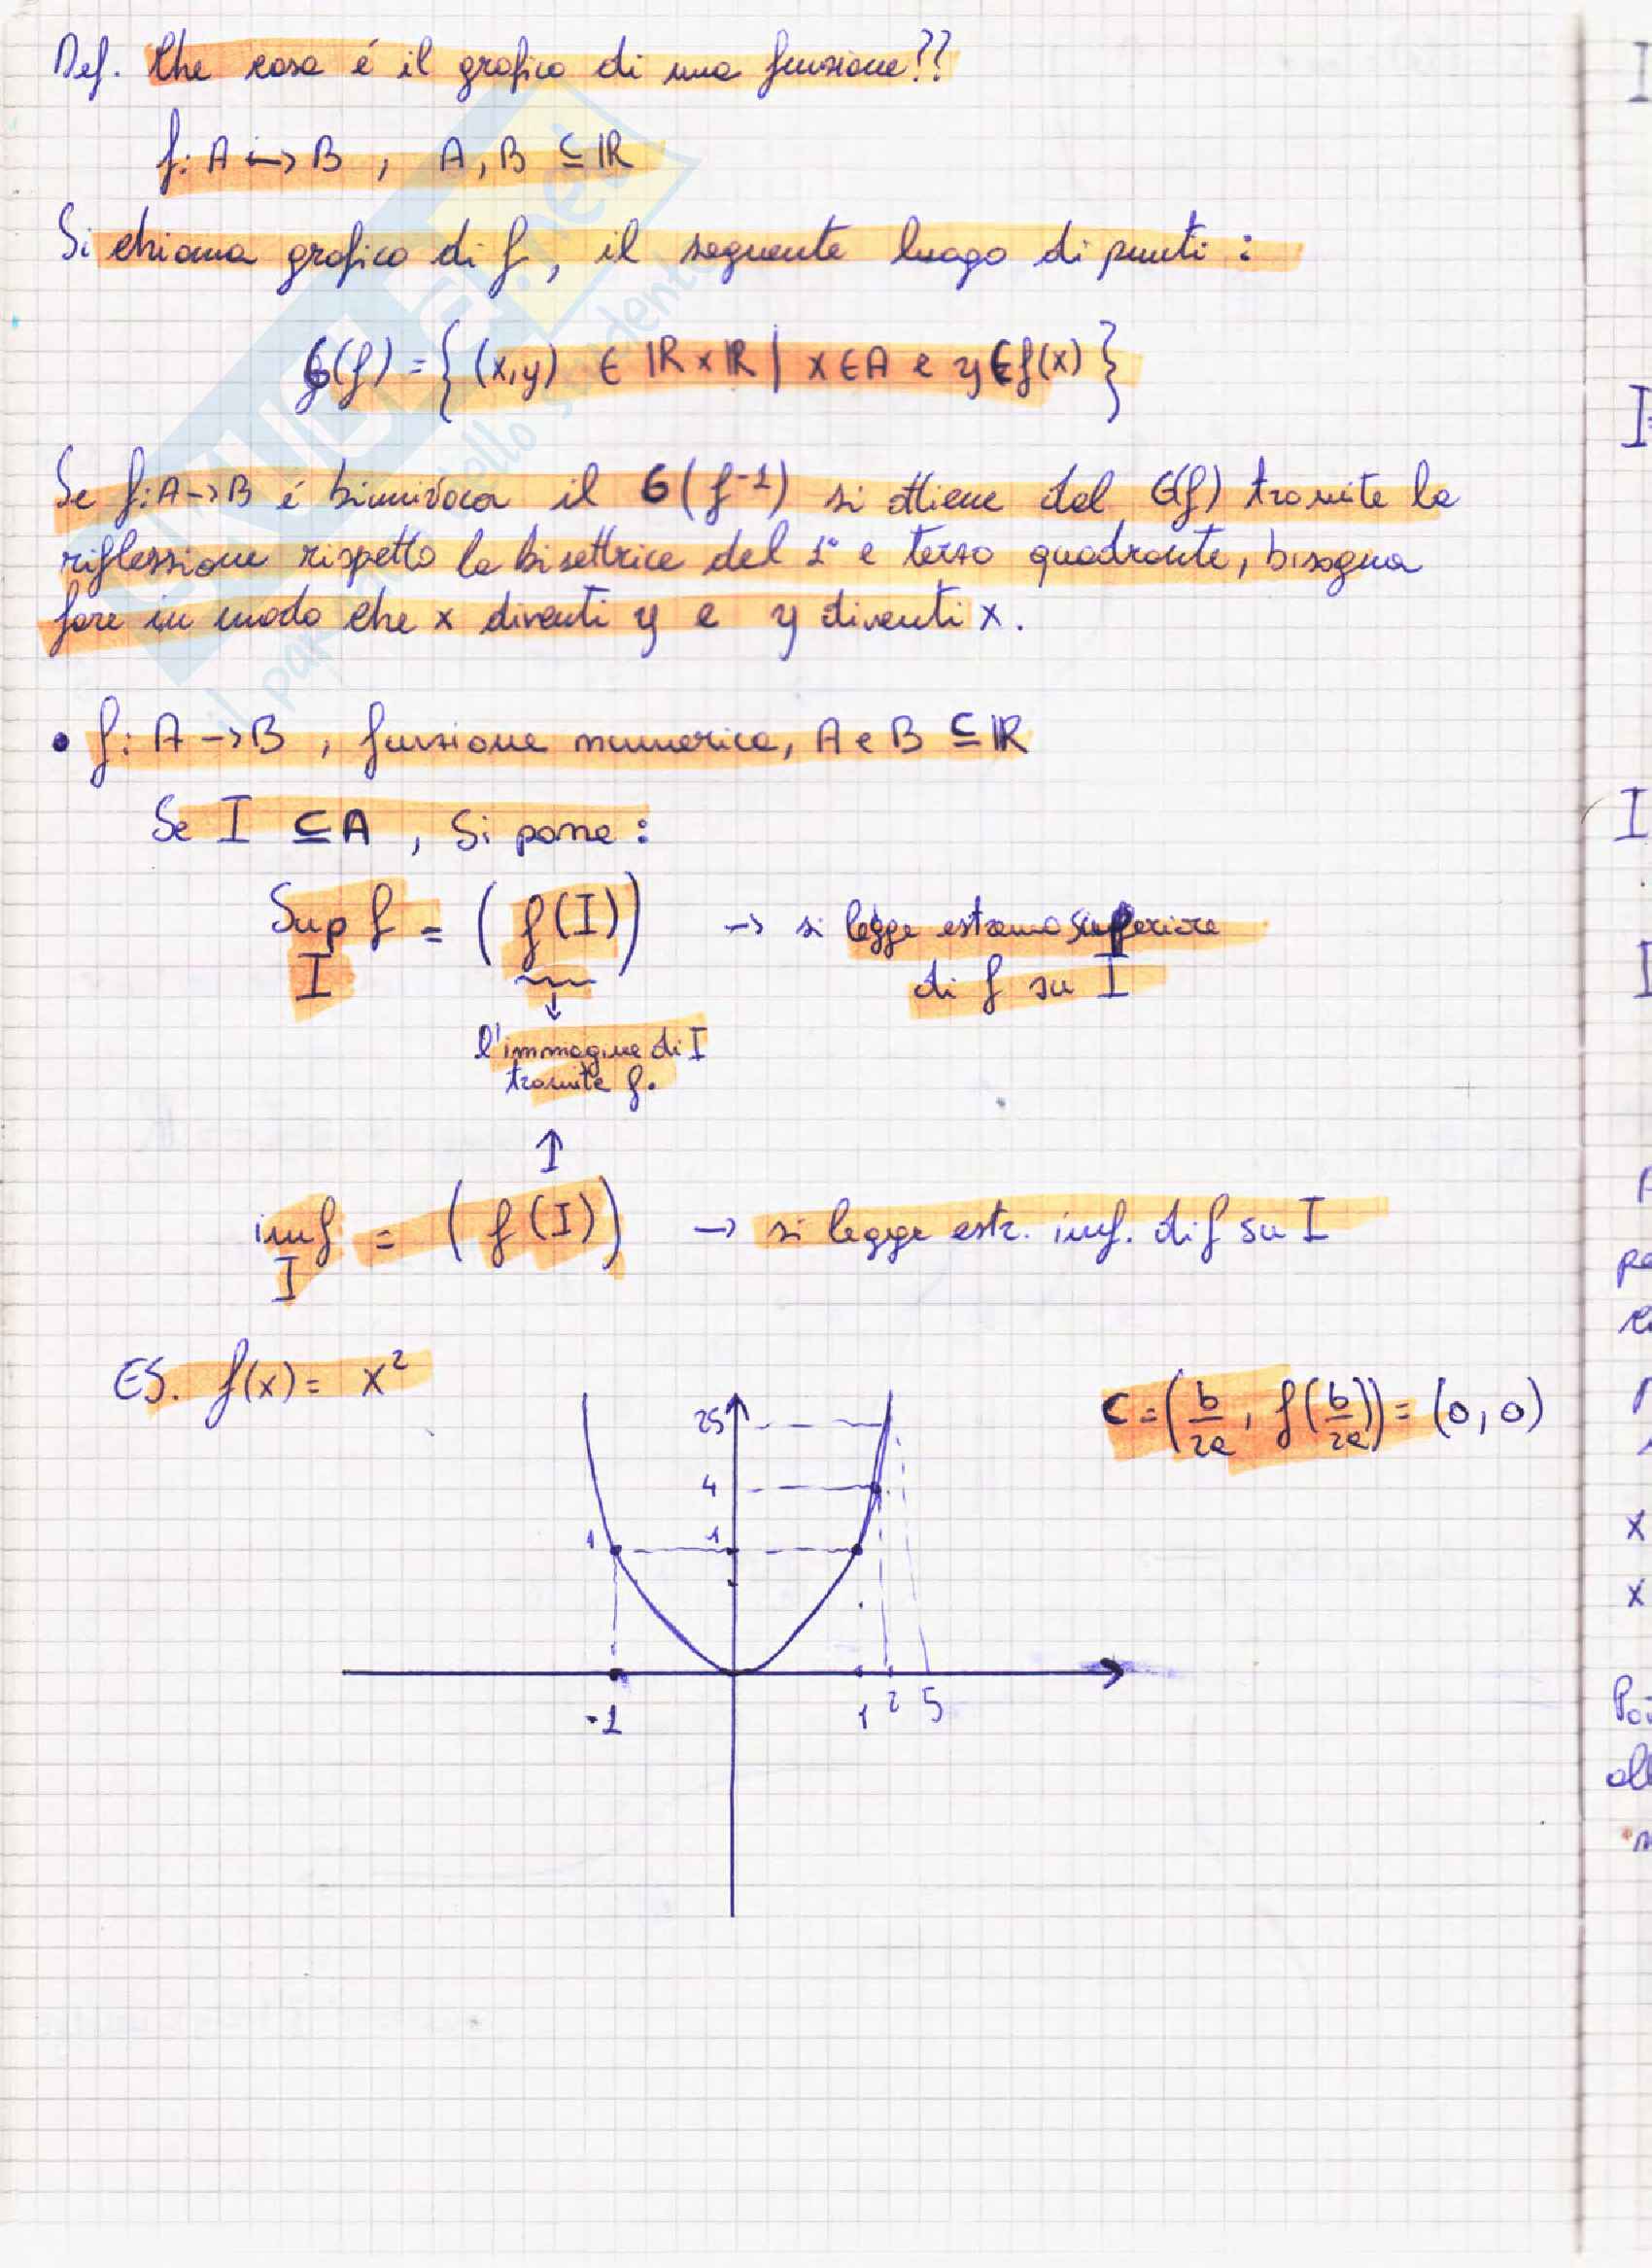 Def. Che cosa é il grafico di una funzione??
f: A ↔ B , A, B ⊆ ℝ
Si chiama grafico di f, il seguente luogo di punti:
G(f) = { (x,y) ∈ ℝ × ℝ | x ∈ A e y ∈ f(x) }
Se f: A → B é biunivoca il G(f⁻¹) si ottiene dal G(f) tramite la
riflessione rispetto la bisettrice del 1° e terzo quadrante, bisogna
fare in modo che x diventi y e y diventi x.
• f: A → B , funzione numerica, A e B ⊆ ℝ
Se I ⊆ A , Si pone:
Sup f = ( f(I) ) → si legge estremo superiore
I di f su I
↓
l'immagine di I
tramite f.
↑
inf f = ( f(I) ) → si legge estr. inf. di f su I
I
ES. f(x) = x²
C = (b/2a, f(b/2a)) = (0, 0)
25
4
1 1
-1 1 2 5
I
I
I
I
x
x